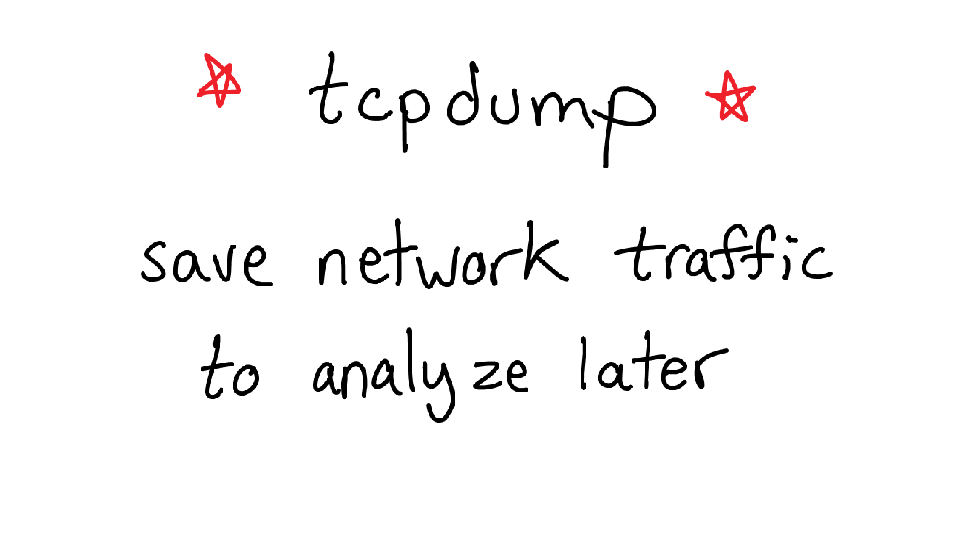 tcpdump
save network traffic
to analyze later